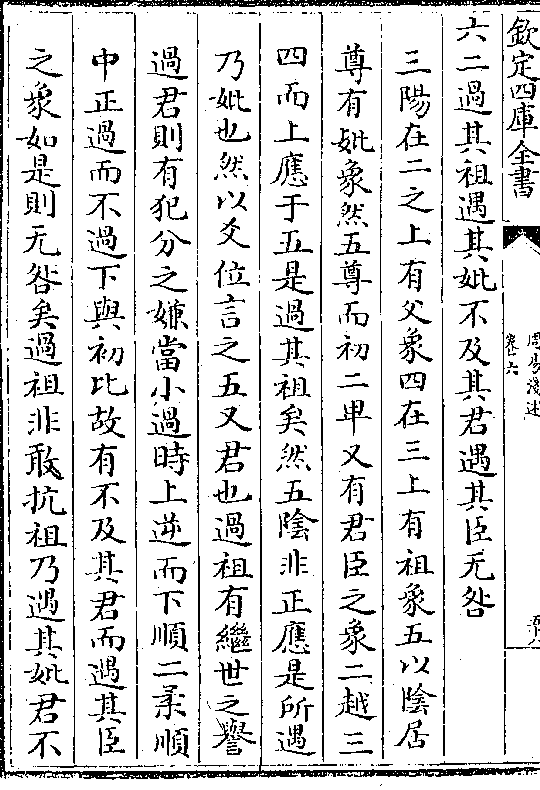 欽定四庫全書
周易淺述
卷六
六二過其祖遇其妣不及其君遇其臣无咎
三陽在二之上有父象四在三上有祖象五以陰居
尊有妣象然五尊而初二卑又有君臣之象二越三
四而上應于五是過其祖矣然五陰非正應是所遇
乃妣也然以爻位言之五又君也過祖有繼世之譽
過君則有犯分之嫌當小過時上逆而下順二柔順
中正過而不過下與初比故有不及其君而遇其臣
之象如是則无咎矣過祖非敢抗祖乃遇其妣君不